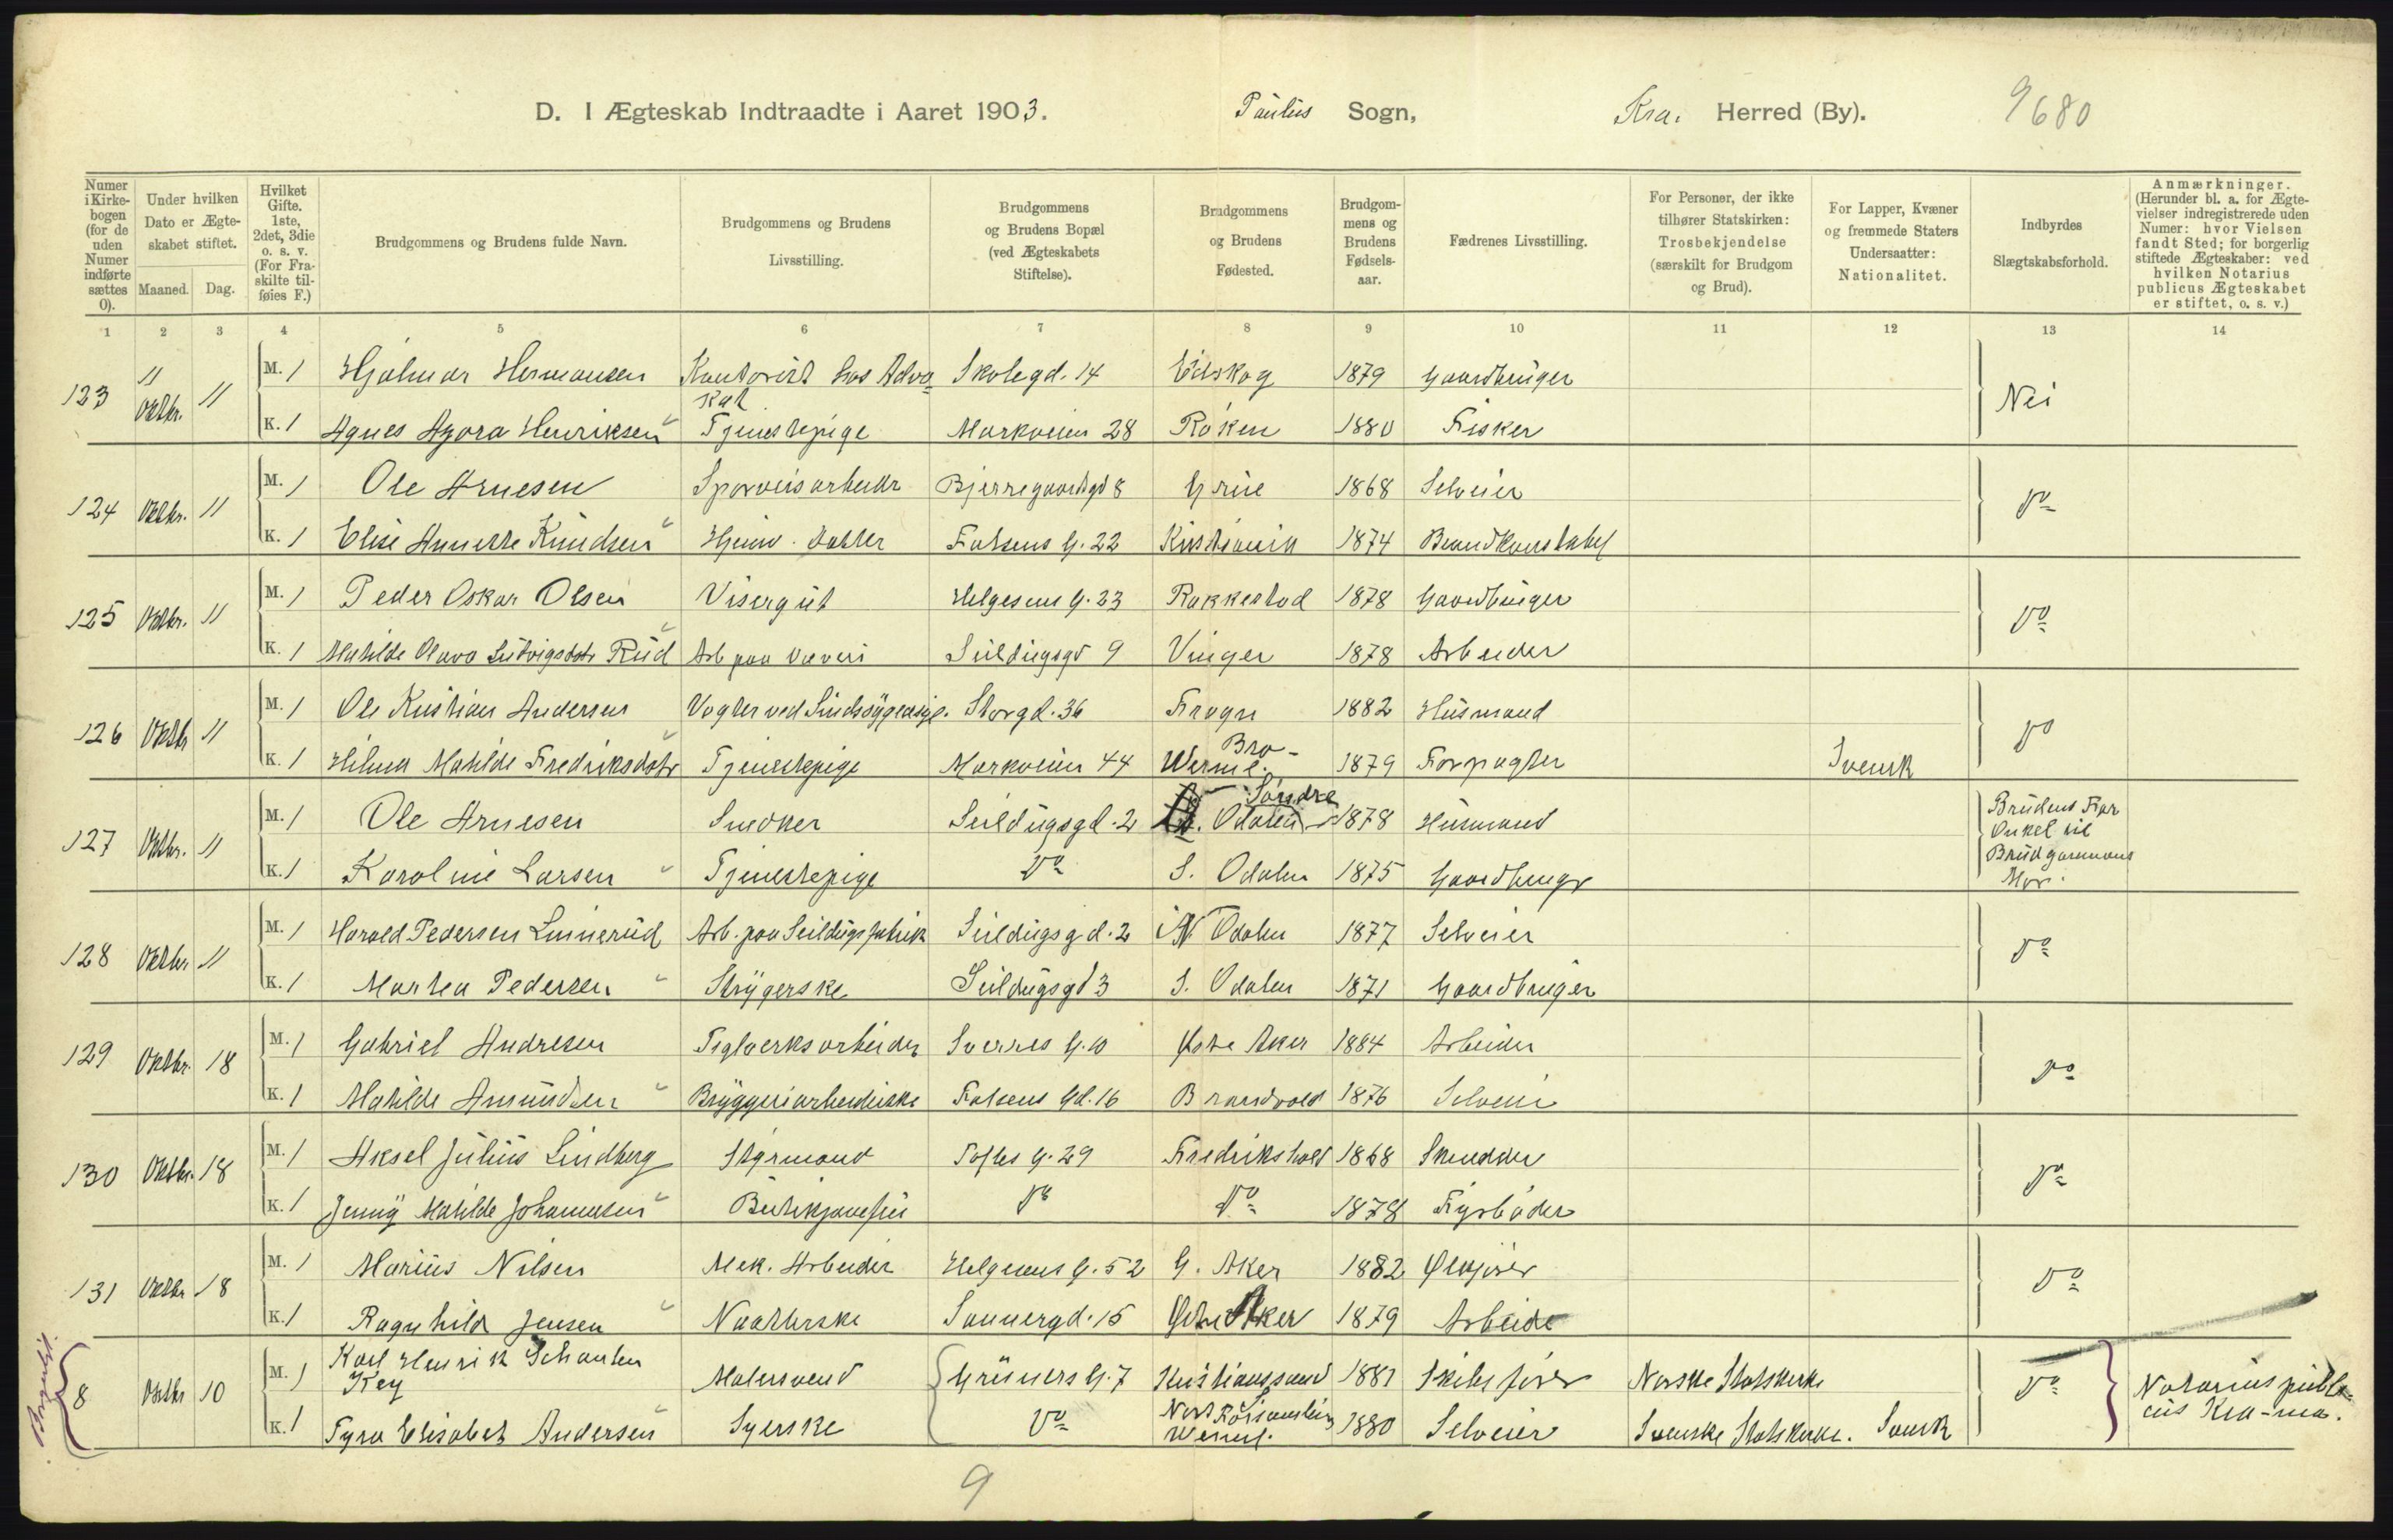 D. I Ægteskab Indtraadte i Aaret 1903. Paulus Sogn, Kra. Herred (By). 9680
Numer i Kirkebogen (for de uden Numer indførte sættes 0).
Under hvilken Dato er Ægteskabet stiftet.
Maaned. Dag.
Hvilket Gifte. 1ste, 2det, 3die o. s. v. (For Fraskilte tilføies F.)
Brudgommens og Brudens fulde Navn.
Brudgommens og Brudens Livsstilling.
Brudgommens og Brudens Bopæl (ved Ægteskabets Stiftelse).
Brudgommens og Brudens Fødested.
Brudgommens og Brudens Fødselsaar.
Fædrenes Livsstilling.
For Personer, der ikke tilhører Statskirken: Trosbekjendelse (særskilt for Brudgom og Brud).
For Lapper, Kvæner og fremmede Staters Undersaatter: Nationalitet.
Indbyrdes Slægtskabsforhold.
Anmærkninger. (Herunder bl. a. for Ægtevielser indregistrerede uden Numer: hvor Vielsen fandt Sted; for borgerlig stiftede Ægteskaber: ved hvilken Notarius publicus Ægteskabet er stiftet, o. s. v.)
1 2 3 4 5 6 7 8 9 10 11 12 13 14
123 Oktbr. 11 M. 1 Hjalmar Hermansen Kontorist hos Advokat Skolegd. 14 Eidskog 1879 Gaardbruger Nei
K. 1 Agnes Azora Henriksen Tjenestepige Markveien 28 Røken 1880 Fisker
124 Oktbr. 11 M. 1 Ole Arnesen Sporveisarbeider Bjerregaardsgd 8 Grue 1868 Selveier Do
K. 1 Elise Annette Knudsen Hjemv. Datter Falsens G. 22 Kristiania 1874 Brandkonstabel
125 Oktbr. 11 M. 1 Peder Oskar Olsen Visergut Helgesens G. 23 Rakkestad 1878 Gaardbruger Do
K. 1 Mathilde Olava Ludvigsdatr Rud Arb paa Væveri Seildugsgd 9 Vinger 1878 Arbeider
126 Oktbr 11 M. 1 Ole Kristian Andersen Vogter ved Sindssygeasyl. Storgd. 36 Frogn 1882 Husmand Do
K. 1 Hilma Matilde Fredriksdatr Tjenestepige Markveien 44 Bro - Werml. 1879 Forpagter Svensk
127 Oktbr. 11 M. 1 Ole Arnesen Snedker Seildugsgd. 2 Søndre Odalen 1878 Husmand Brudens Far Onkel til Brudgommens Mor.
K. 1 Karoline Larsen Tjenestepige Do S. Odalen 1875 Gaardbruger
128 Oktbr 11 M. 1 Harald Pedersen Linnerud Arb. paa Seildugsfabrik Seildugsgd. 2 N Odalen 1877 Selveier Do
K. 1 Martea Pedersen Strygerske Seildugsgd 3 S. Odalen 1871 Gaardbruger
129 Oktbr. 18 M. 1 Gabriel Andresen Teglverksarbeider Sverres G. 10 Østre Aker 1884 Arbeider Do
K. 1 Matilde Amundsen Bryggeriarbeiderske Falsens Gd. 16 Brandvold 1876 Selveier
130 Oktbr. 18 M. 1 Aksel Julius Lindberg Styrmand Toftes G. 29 Fredrikshald 1868 Skrædder Do
K. 1 Jenny Matilde Johannesen Butikjomfru Do Do 1878 Fyrbøder
131 Oktbr 18 M. 1 Marius Nilsen Mek. Arbeider Helgesens G. 52 G. Aker 1882 Ølkjører Do
K. 1 Ragnhild Jensen Naatlerske Sannergd. 15 Østre Aker 1879 Arbeide
Borgerlit.
8 Oktbr 10 M. 1 Karl Henrik Schanken Key Malersvend Grüners G. 7 Kristianssund 1881 Skibsfører Norske Statskirke Do Notarius publicus Kra-nia.
K. 1 Tyra Elisabet Andersen Syerske Do Werml. 1880 Selveier Svenske Statskirke. Svensk
9